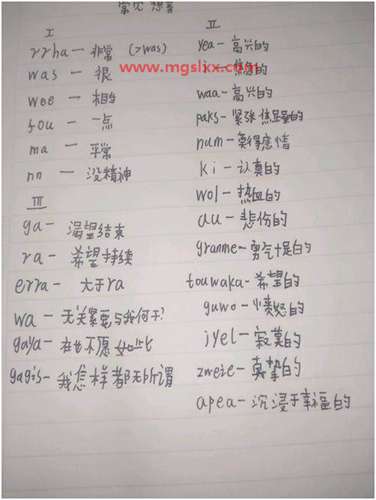 常见想音
I
rrha — 非常 (>was)
was — 很
wee — 相当
fou — 一点
ma — 平常
nn — 没精神
III
ga — 渴望结束
ra — 希望持续
erra — 大于ra
wa — 无关紧要与我何干?
gaya — 再也不愿如此
gagis — 我怎样都无所谓
II
yea — 高兴的
www.mgslxx.com
waa — 高兴的
paks — 紧张焦虑的
num — 莫得感情
ki — 认真的
wol — 热血的
au — 悲伤的
granme — 勇气十足的
touwaka — 希望的
guwo — 愤怒的
iyel — 寂寞的
zweie — 真挚的
apea — 沉浸于幸福的